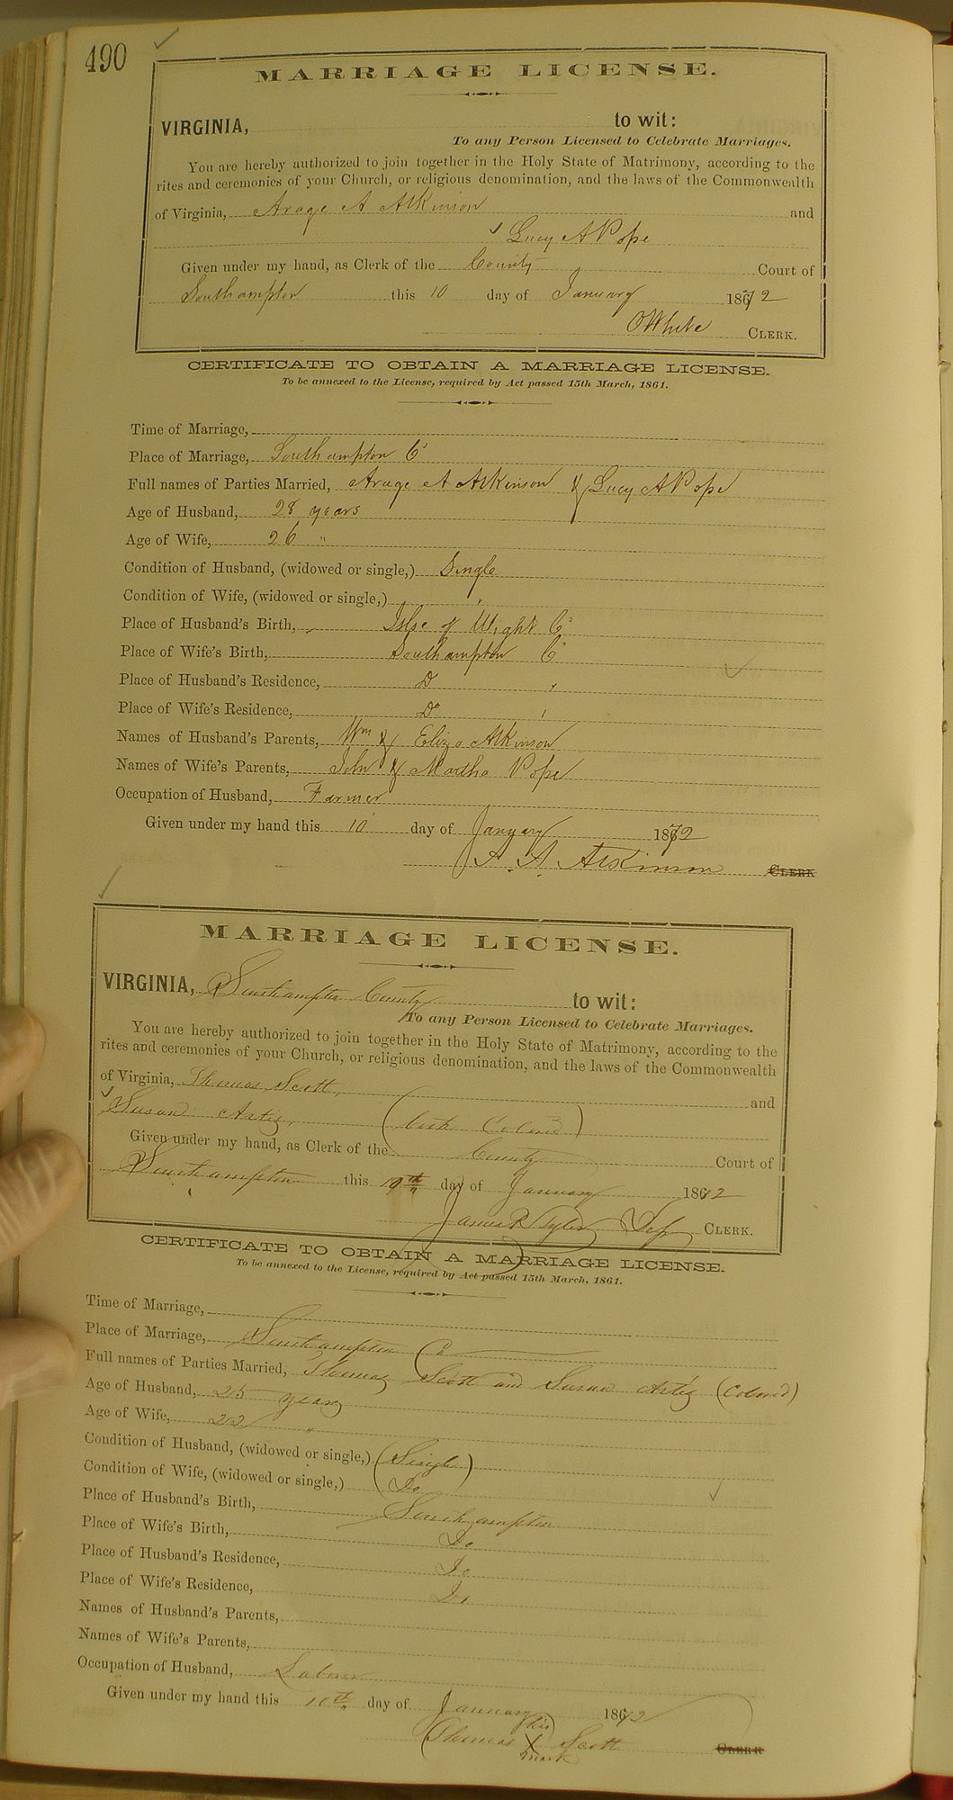 490
MARRIAGE LICENSE.
VIRGINIA, to wit:
To any Person Licensed to Celebrate Marriages.
You are hereby authorized to join together in the Holy State of Matrimony, according to the
rites and ceremonies of your Church, or religious denomination, and the laws of the Commonwealth
of Virginia, A A Atkinson and
Lucy A Pope
Given under my hand, as Clerk of the County Court of
Southampton this 10 day of January 1872
White CLERK.
CERTIFICATE TO OBTAIN A MARRIAGE LICENSE.
To be annexed to the License, required by Act passed 15th March, 1861.
Time of Marriage,
Place of Marriage, Southampton Co
Full names of Parties Married, A Atkinson & Lucy A Pope
Age of Husband, 28 years
Age of Wife, 26 "
Condition of Husband, (widowed or single,) Single
Condition of Wife, (widowed or single,) "
Place of Husband's Birth, Isle of Wight Co
Place of Wife's Birth, Southampton Co
Place of Husband's Residence, Do "
Place of Wife's Residence, Do "
Names of Husband's Parents, Wm & Eliza Atkinson
Names of Wife's Parents, John & Martha Pope
Occupation of Husband, Farmer
Given under my hand this 10 day of January 1872
A. A. Atkinson CLERK
MARRIAGE LICENSE.
VIRGINIA, Southampton County to wit:
To any Person Licensed to Celebrate Marriages.
You are hereby authorized to join together in the Holy State of Matrimony, according to the
rites and ceremonies of your Church, or religious denomination, and the laws of the Commonwealth
of Virginia, Thomas Scott, and
Susan Artis, (both Colored)
Given under my hand, as Clerk of the County Court of
Southampton this 10th day of January 1872
James R Tyler Dep CLERK.
CERTIFICATE TO OBTAIN A MARRIAGE LICENSE.
To be annexed to the License, required by Act passed 15th March, 1861.
Time of Marriage,
Place of Marriage, Southampton Co
Full names of Parties Married, Thomas Scott and Susan Artis (Colored)
Age of Husband, 25 years
Age of Wife, 22 "
Condition of Husband, (widowed or single,) (Single)
Condition of Wife, (widowed or single,) (Do)
Place of Husband's Birth, Southampton
Place of Wife's Birth, Do
Place of Husband's Residence, Do
Place of Wife's Residence, Do
Names of Husband's Parents,
Names of Wife's Parents,
Occupation of Husband, Laborer
Given under my hand this 10th day of January 1872
his
(Thomas X Scott CLERK
mark